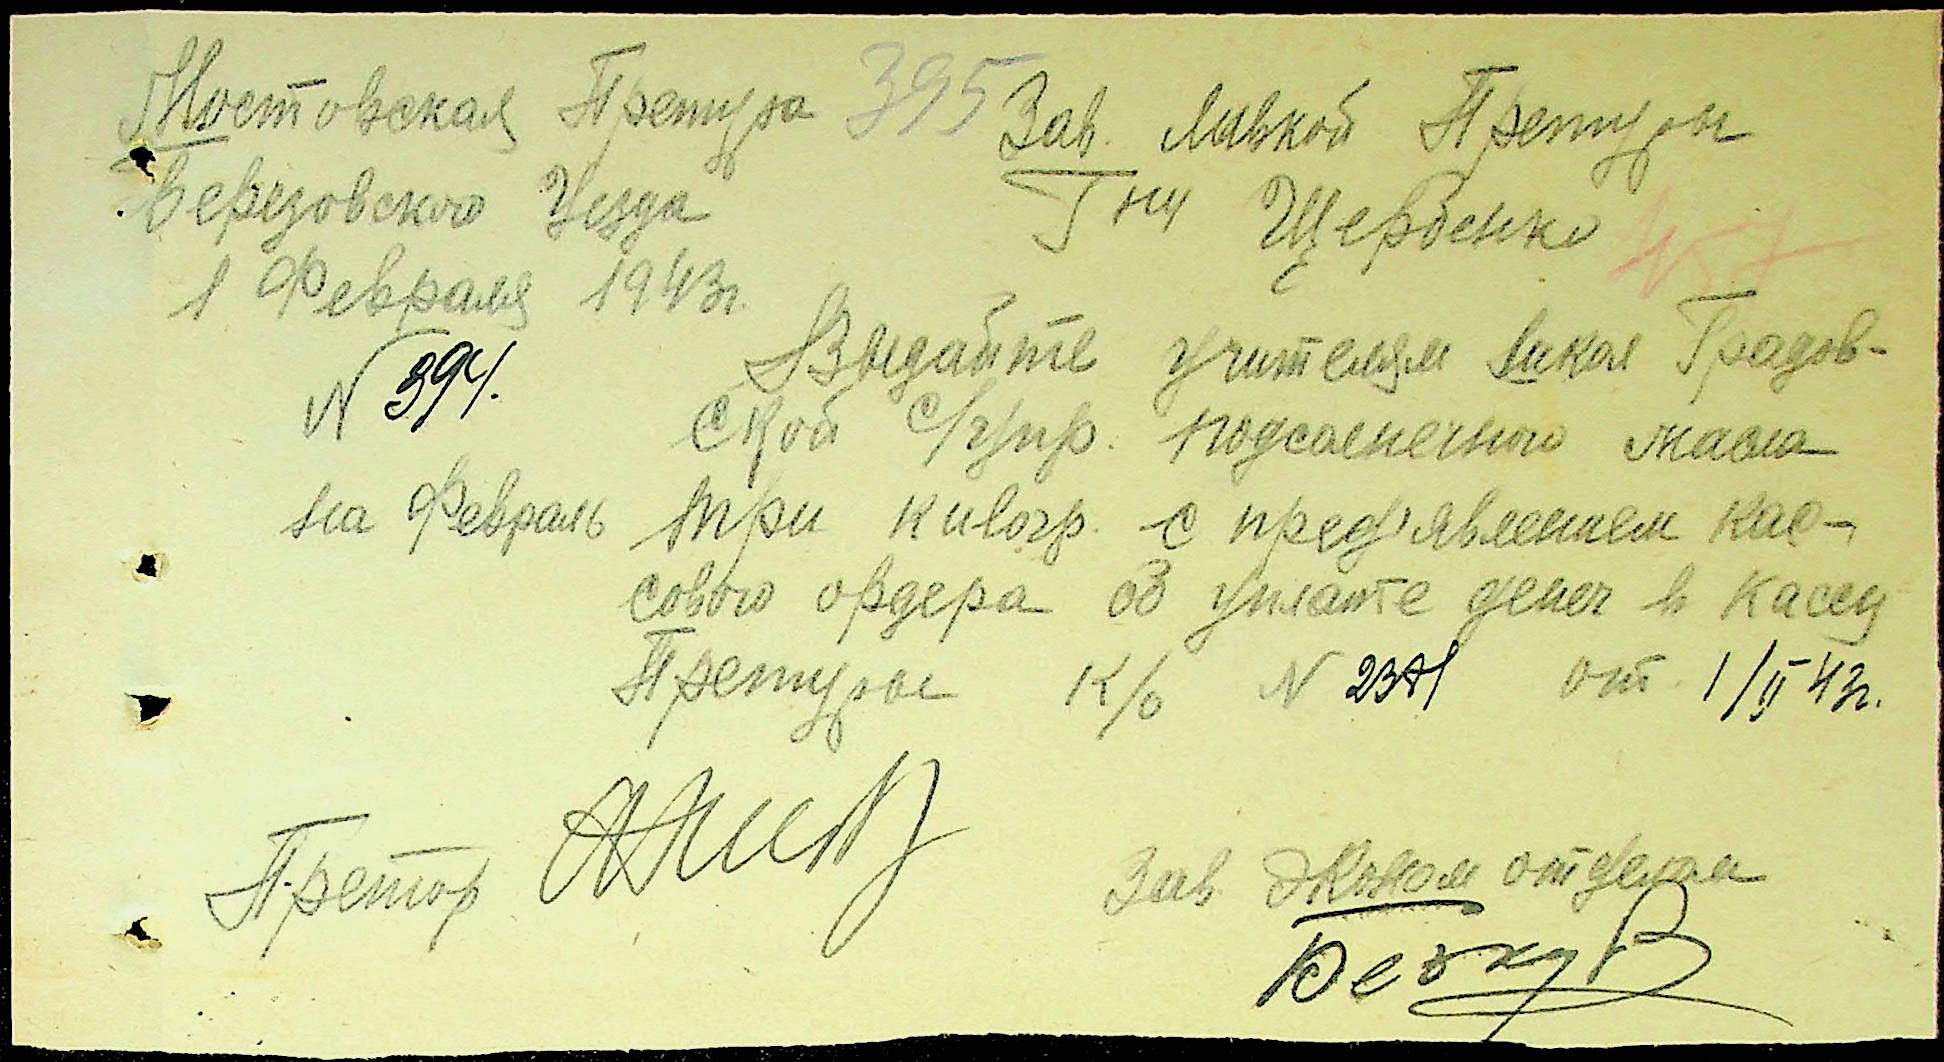 Мостовская Претура 395
Березовского Уезда
1 Февраля 1943г.
N 394.
на Февраль
Зав. Лавкой Претуры
Г-ну Щербенко
157
Выдайте учителям школ Градов-
ской с/упр. подсолнечного масла
три килогр. с пред'явлением кас-
сового ордера об уплате денег в кассу
Претуры К/о N от 1/II 43г.
Претор
Зав. Эконом отделом